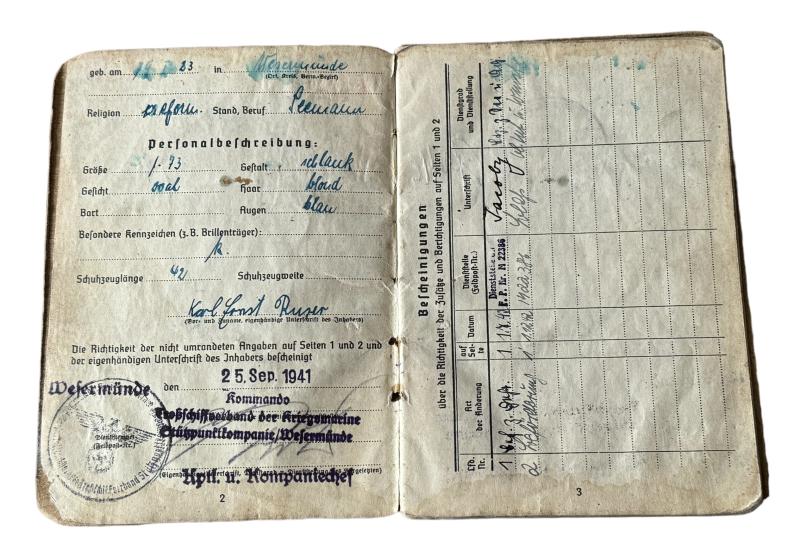 geb. am 23 in Wesermünde
(Ort, Kreis, Verw.-Bezirk)
Religion reform. Stand, Beruf Seemann
Personalbeschreibung:
Größe 1.73 Gestalt schlank
Gesicht oval Haar blond
Bart Augen blau
Besondere Kennzeichen (z. B. Brillenträger):
k.
Schuhzeuglänge 42 Schuhzeugweite
Karl Ernst Ruser
(Vor- und Zuname, eigenhändige Unterschrift des Inhabers)
Die Richtigkeit der nicht umrandeten Angaben auf Seiten 1 und 2 und
der eigenhändigen Unterschrift des Inhabers bescheinigt
Wesermünde den 25. Sep. 1941
Kommando
Troßschiffverband der Kriegsmarine
Stützpunktkompanie/Wesermünde
Dienststempel
(Feldpost-Nr.)
Kptl. u. Kompaniechef
2
Bescheinigungen
über die Richtigkeit der Zusätze und Berichtigungen auf Seiten 1 und 2
Lfd. Nr.
Art der Änderung
auf Seite
Datum
Dienststelle (Feldpost-Nr.)
Unterschrift
Dienstgrad und Dienststellung
1 1 1.7.42 F. P. Nr. M 22386 Jacoby
2 Beförderung 1
3